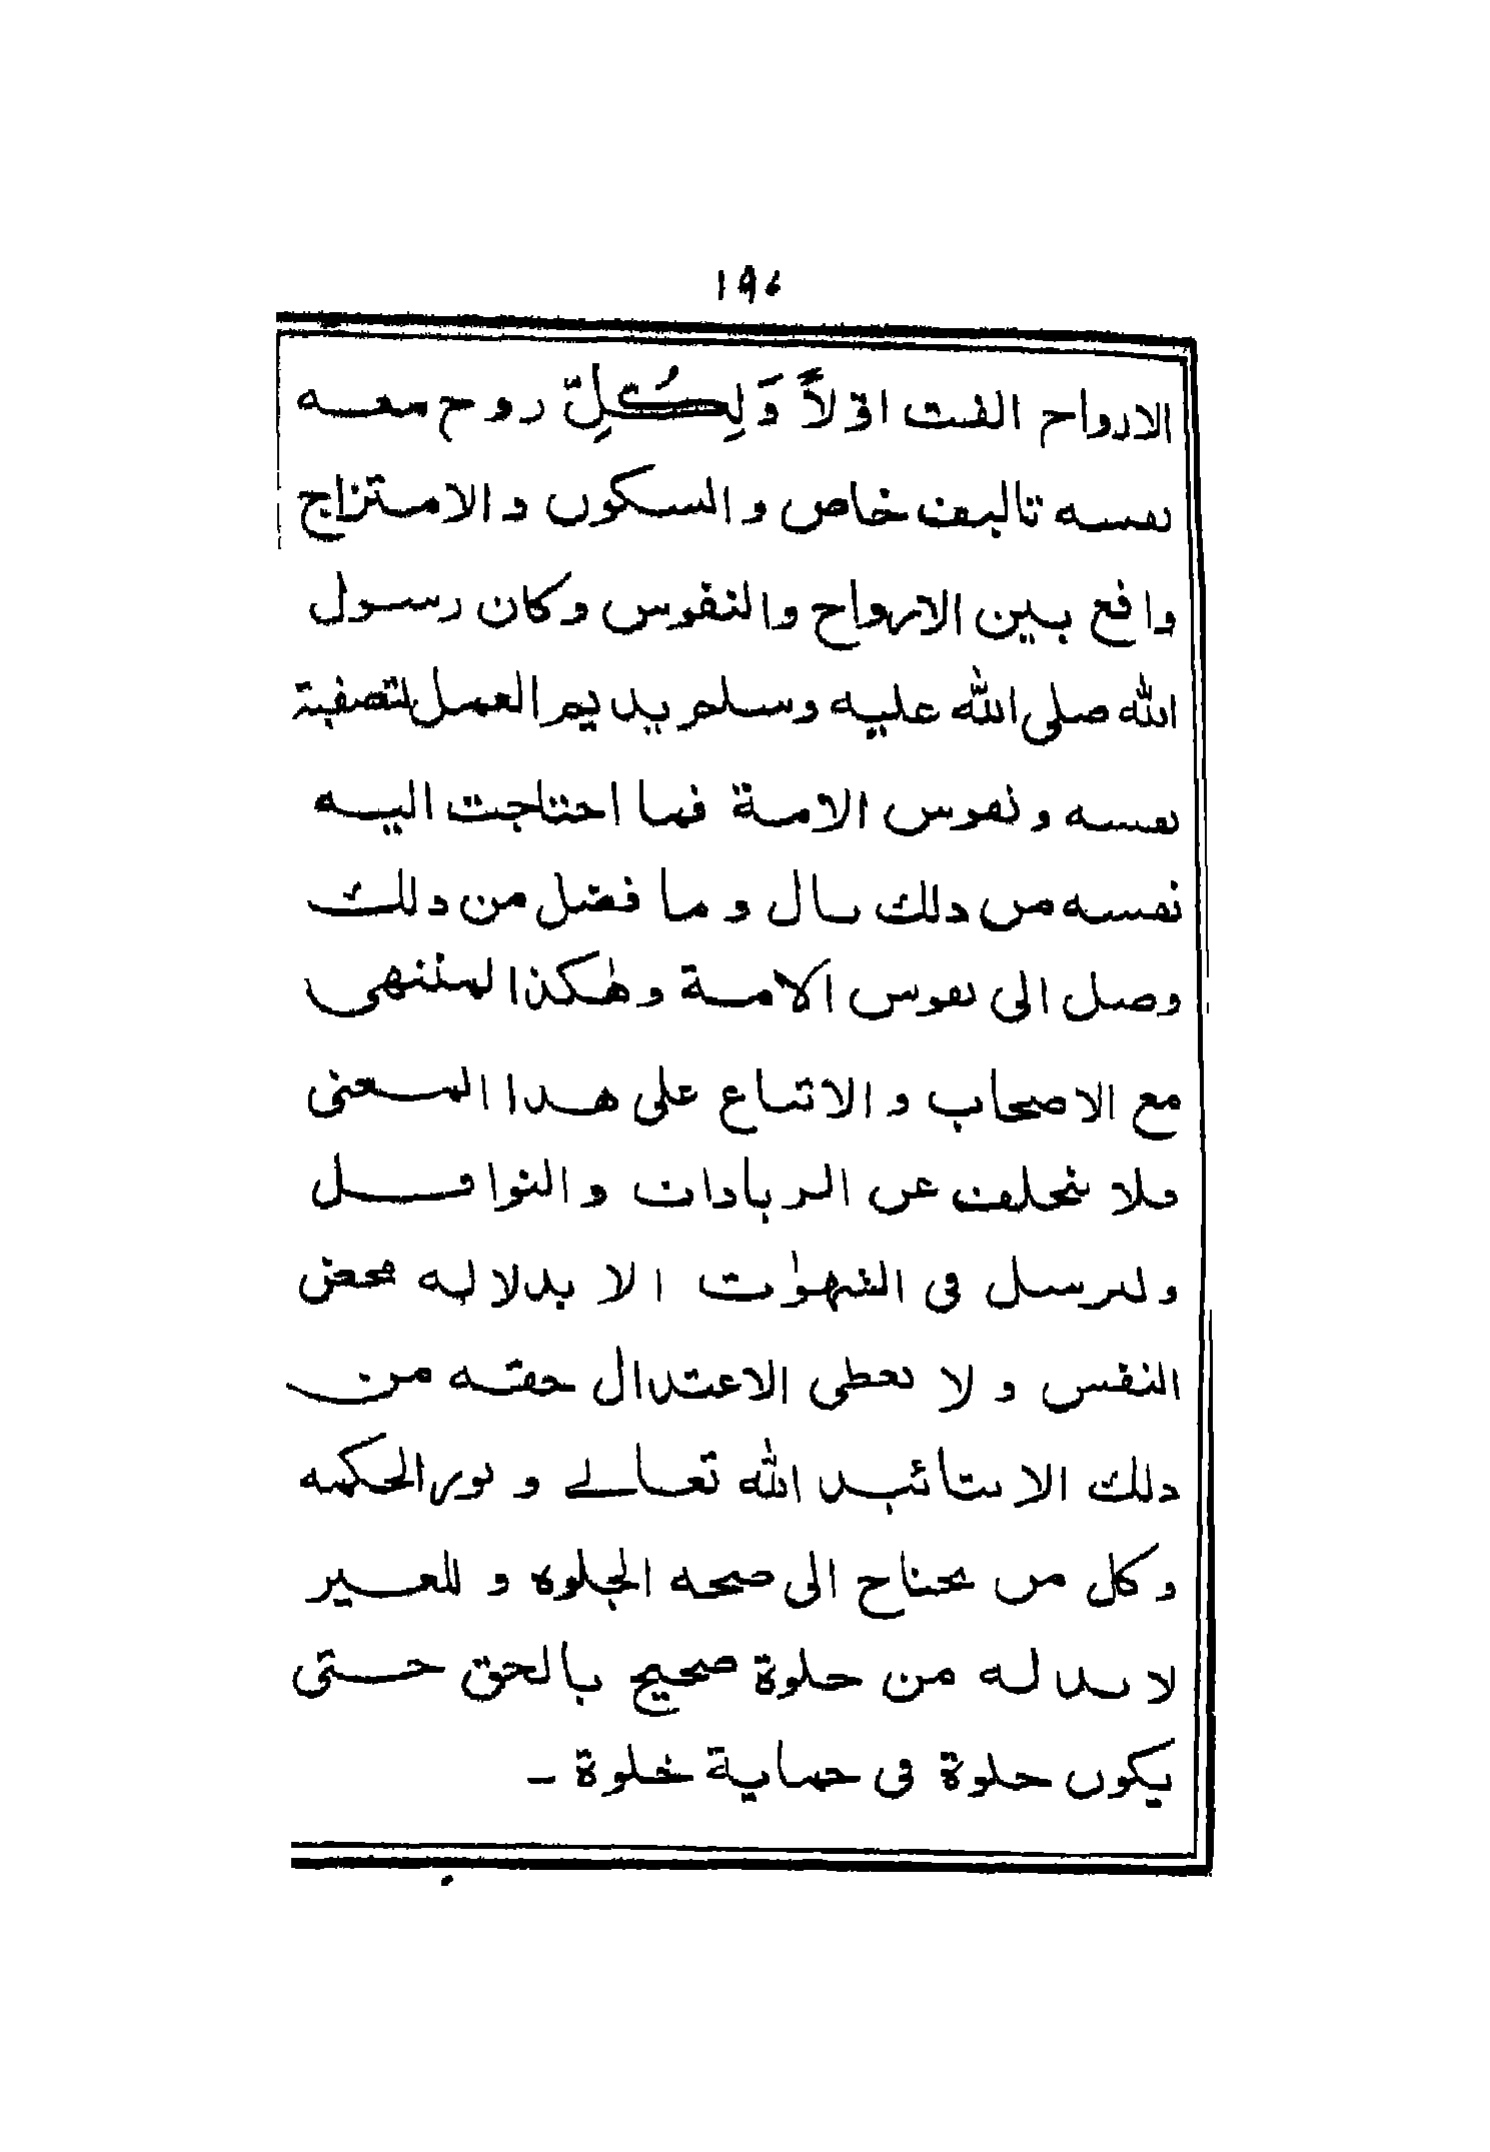 ١٩٤
الارواح الفت اوّلاً وَلِكُلِّ روح معه
نفسه تاليف خاص والسكون والامتزاج
واقع بين الارواح والنفوس وكان رسول
الله صلى الله عليه وسلم يديم العمل لتصفية
نفسه ونفوس الامة فما احتاجت اليه
نفسه من ذلك نال وما فضل من ذلك
وصل الى نفوس الامة وهكذا المنتهى
مع الاصحاب والاتباع على هذا المعنى
فلا يتخلف عن الزيادات والنوافل
ولا يسترسل فى الشهوٰت الا بدلالة محض
النفس ولا يعطى الاعتدال حقه من
ذلك الا بتائيد الله تعالے ونور الحكمه
وكل من يحتاج الى صحه الجلوه و للغير
لا بد له من خلوة صحيح بالحق حتى
يكون جلوة فى حماية خلوة -